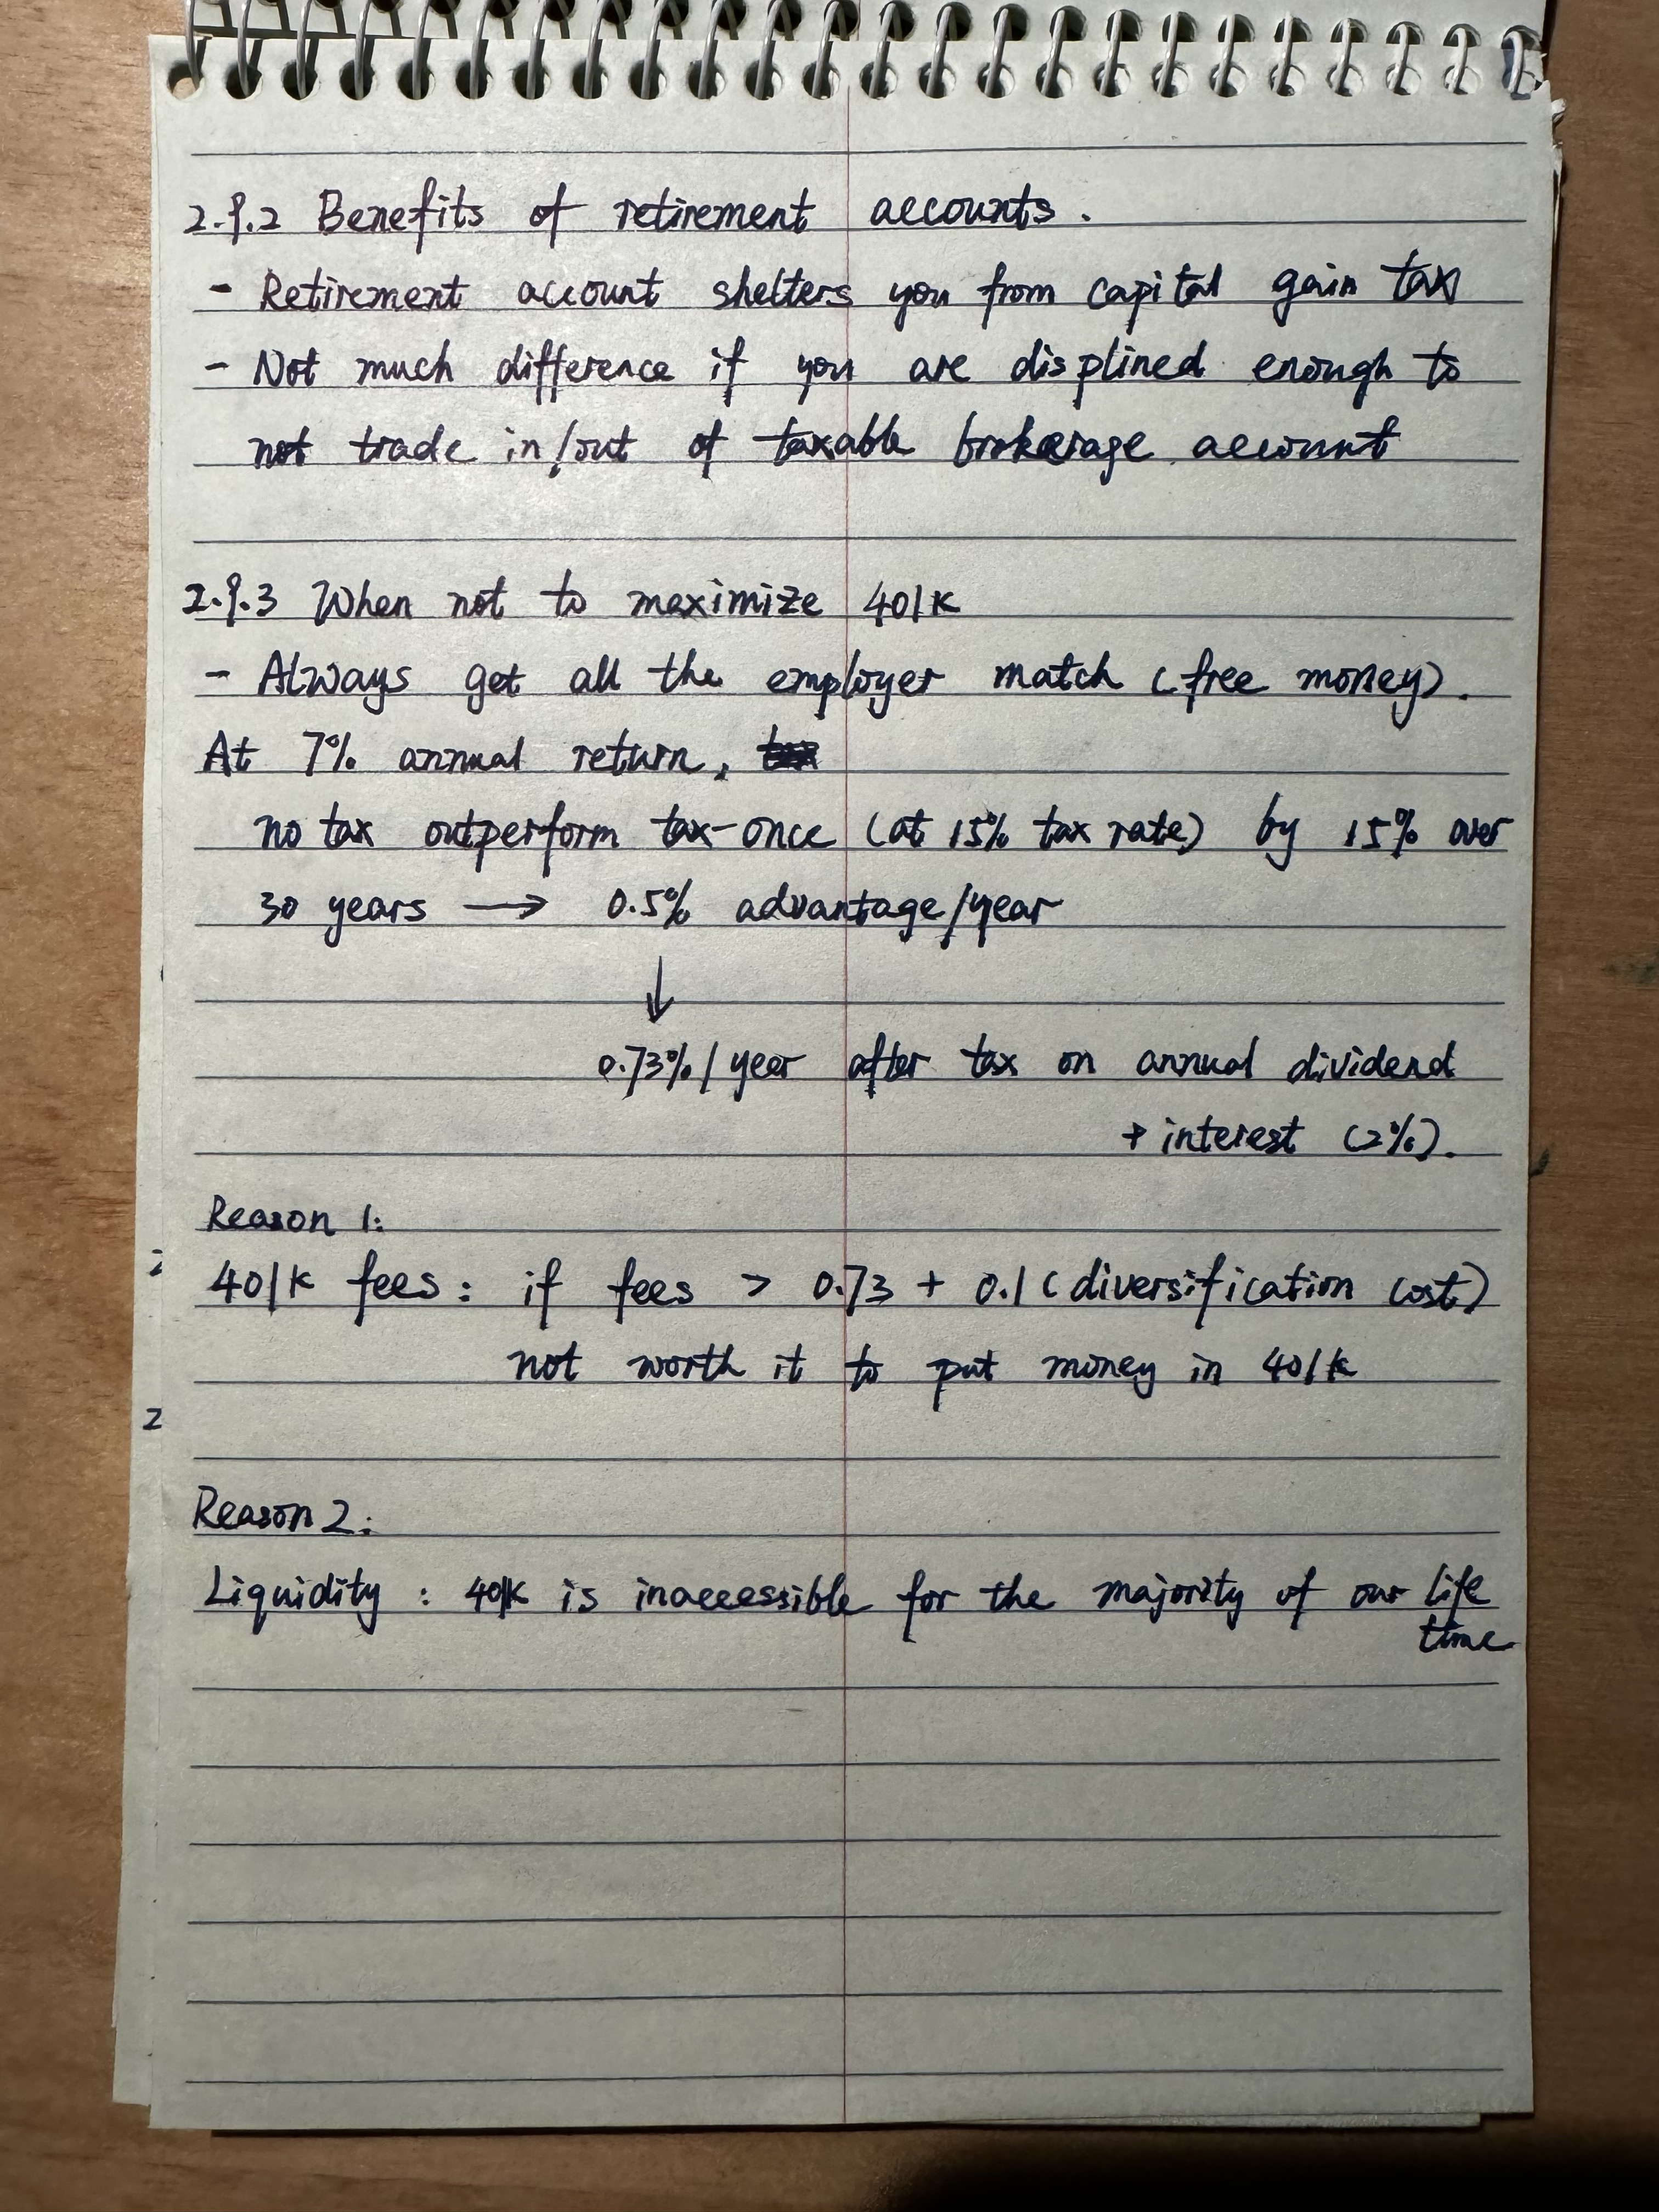 2.9.2 Benefits of retirement accounts.
- Retirement account shelters you from capital gain tax
- Not much difference if you are displined enough to
not trade in/out of taxable brokerage account
2.9.3 When not to maximize 401K
- Always get all the employer match (free money).
At 7% annual return,
no tax outperform tax-once (at 15% tax rate) by 15% over
30 years → 0.5% advantage/year
↓
0.73%/year after tax on annual dividend
+ interest (2%).
Reason 1:
401K fees: if fees > 0.73 + 0.1 (diversification cost)
not worth it to put money in 401k
2
Reason 2:
Liquidity: 401K is inaccessible for the majority of our life
time